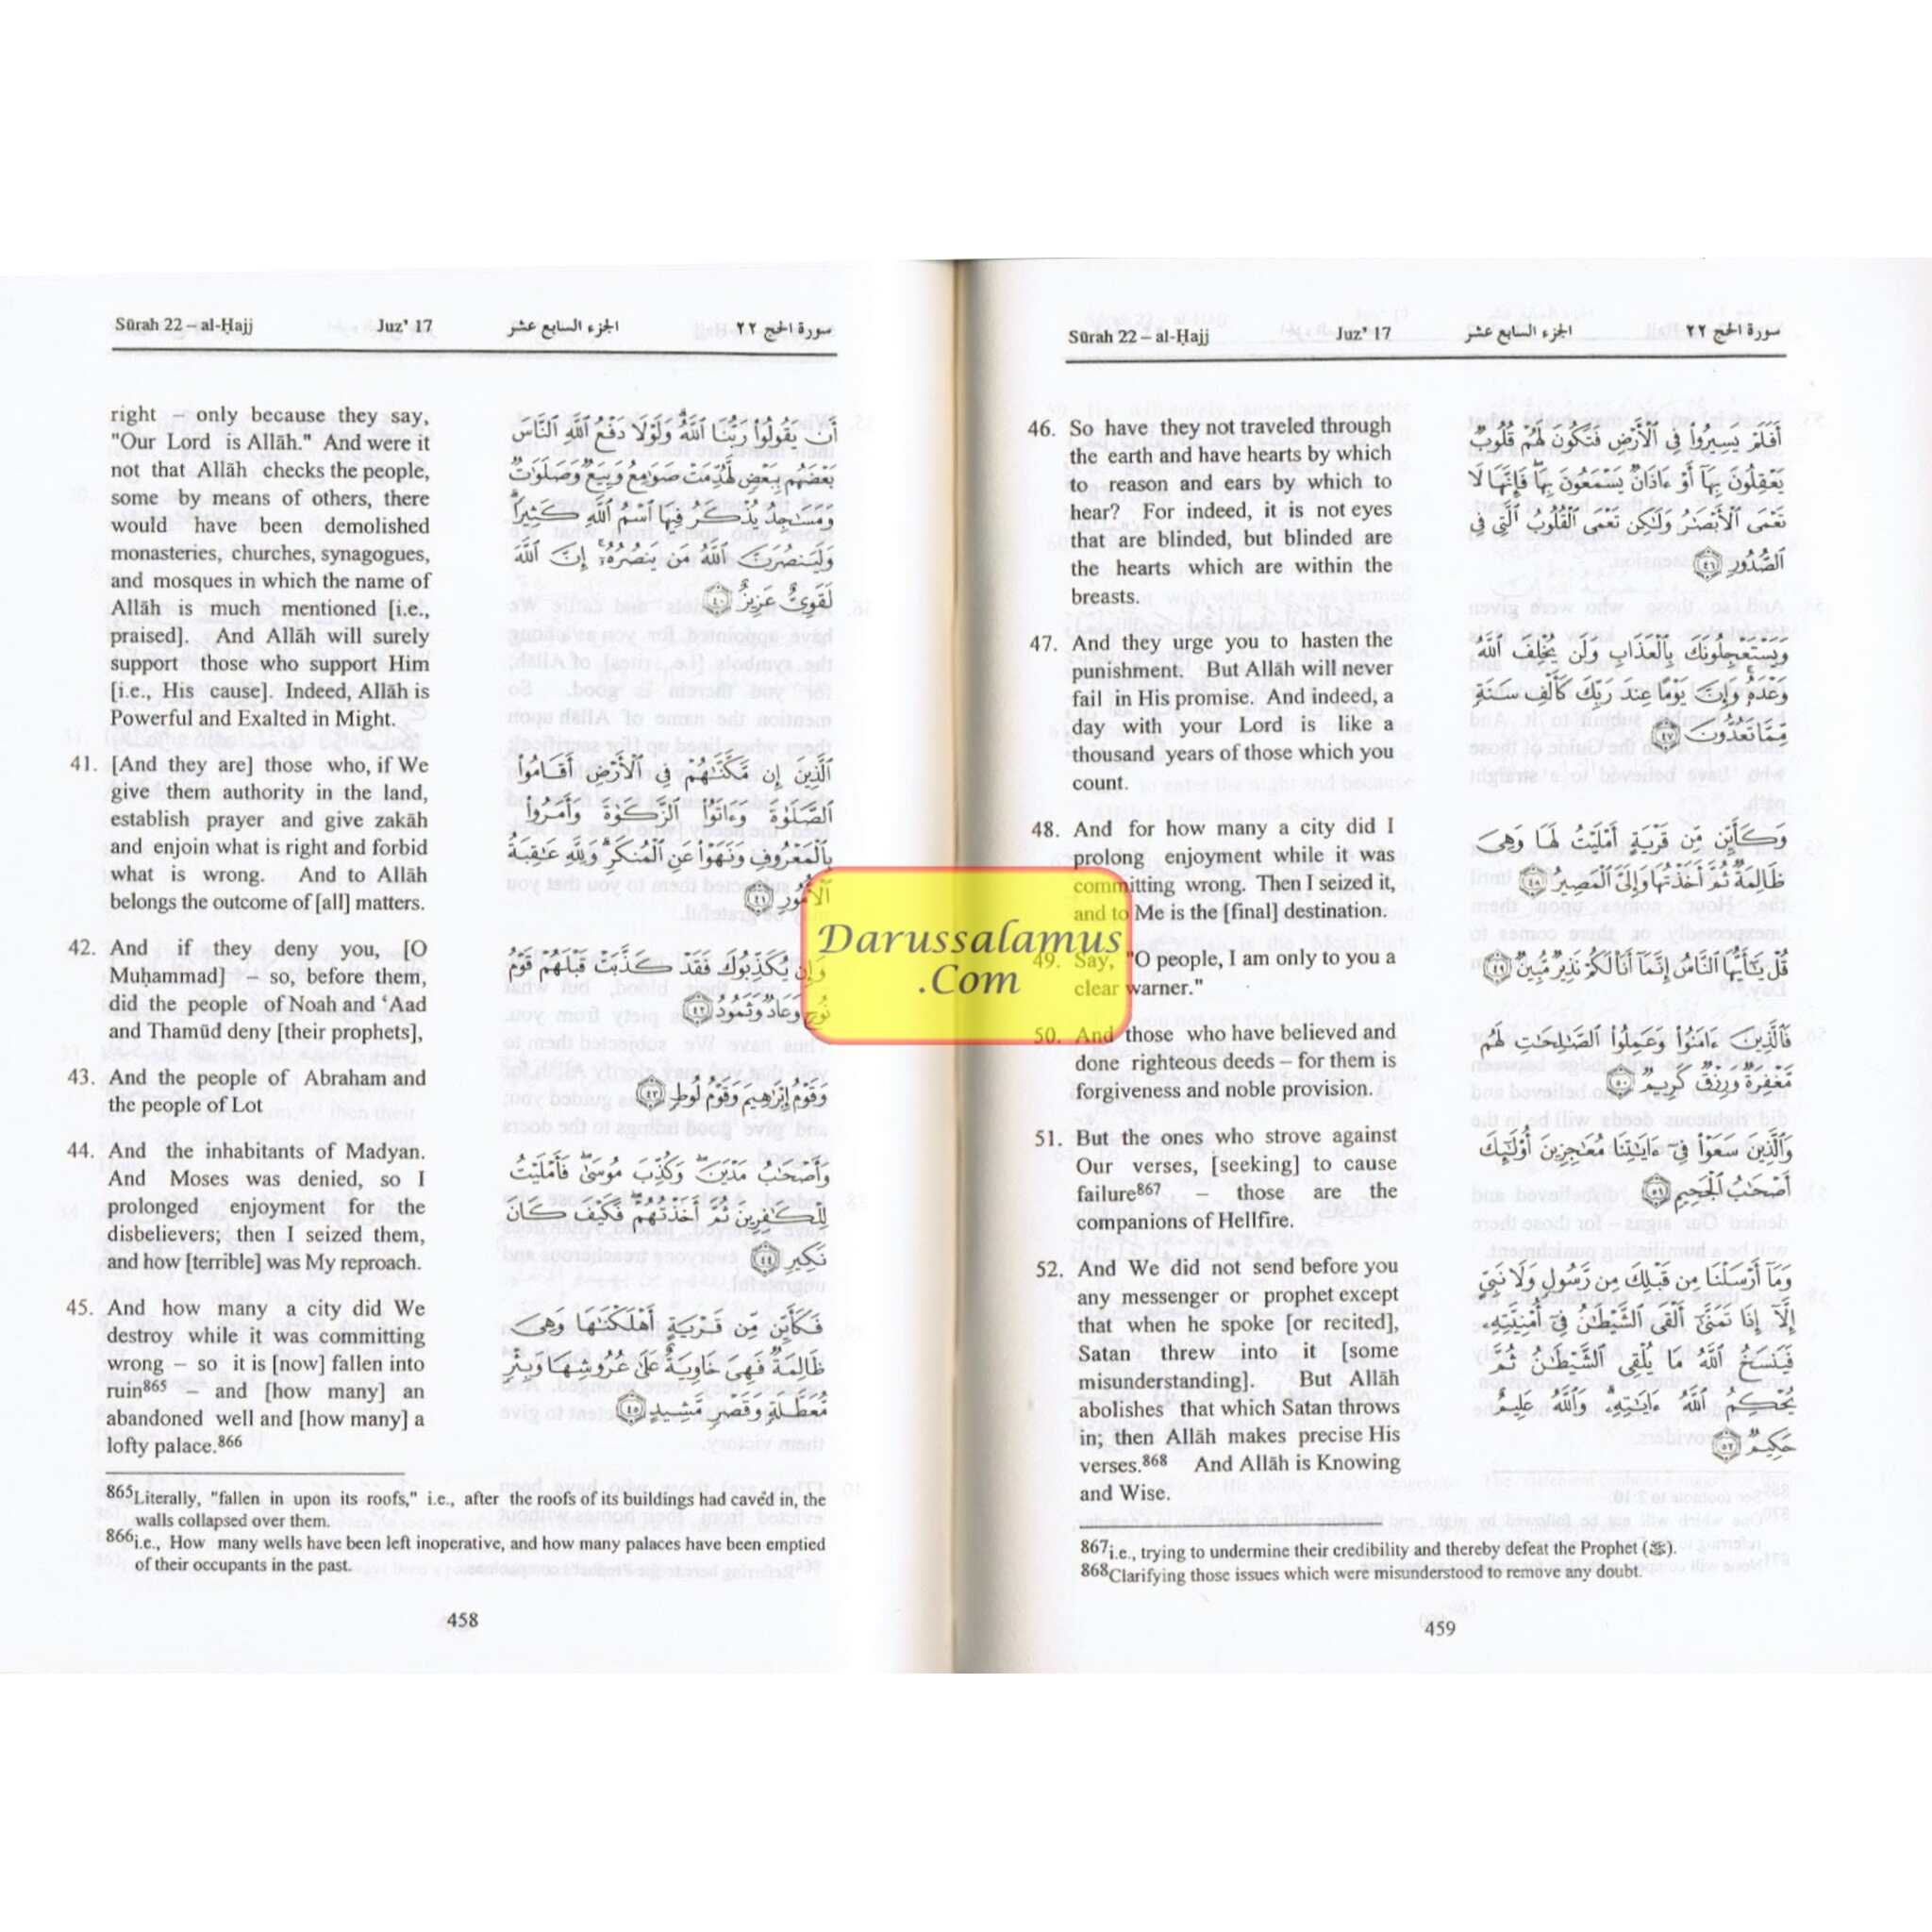 Sūrah 22 – al-Ḥajj Juz' 17 الجزء السابع عشر سورة الحج ٢٢
right – only because they say,
"Our Lord is Allāh." And were it
not that Allāh checks the people,
some by means of others, there
would have been demolished
monasteries, churches, synagogues,
and mosques in which the name of
Allāh is much mentioned [i.e.,
praised]. And Allāh will surely
support those who support Him
[i.e., His cause]. Indeed, Allāh is
Powerful and Exalted in Might.
أَن يَقُولُوا۟ رَبُّنَا ٱللَّهُ ۗ وَلَوْلَا دَفْعُ ٱللَّهِ ٱلنَّاسَ
بَعْضَهُم بِبَعْضٍ لَّهُدِّمَتْ صَوَٰمِعُ وَبِيَعٌ وَصَلَوَٰتٌ
وَمَسَٰجِدُ يُذْكَرُ فِيهَا ٱسْمُ ٱللَّهِ كَثِيرًا ۗ
وَلَيَنصُرَنَّ ٱللَّهُ مَن يَنصُرُهُۥٓ ۗ إِنَّ ٱللَّهَ
لَقَوِىٌّ عَزِيزٌ ٤٠
41. [And they are] those who, if We
give them authority in the land,
establish prayer and give zakāh
and enjoin what is right and forbid
what is wrong. And to Allāh
belongs the outcome of [all] matters.
ٱلَّذِينَ إِن مَّكَّنَّٰهُمْ فِى ٱلْأَرْضِ أَقَامُوا۟
ٱلصَّلَوٰةَ وَءَاتَوُا۟ ٱلزَّكَوٰةَ وَأَمَرُوا۟
بِٱلْمَعْرُوفِ وَنَهَوْا۟ عَنِ ٱلْمُنكَرِ ۗ وَلِلَّهِ عَٰقِبَةُ
ٱلْأُمُورِ ٤١
42. And if they deny you, [O
Muḥammad] – so, before them,
did the people of Noah and ‘Aad
and Thamūd deny [their prophets],
وَإِن يُكَذِّبُوكَ فَقَدْ كَذَّبَتْ قَبْلَهُمْ قَوْمُ
نُوحٍ وَعَادٌ وَثَمُودُ ٤٢
43. And the people of Abraham and
the people of Lot
وَقَوْمُ إِبْرَٰهِيمَ وَقَوْمُ لُوطٍ ٤٣
44. And the inhabitants of Madyan.
And Moses was denied, so I
prolonged enjoyment for the
disbelievers; then I seized them,
and how [terrible] was My reproach.
وَأَصْحَٰبُ مَدْيَنَ ۖ وَكُذِّبَ مُوسَىٰ فَأَمْلَيْتُ
لِلْكَٰفِرِينَ ثُمَّ أَخَذْتُهُمْ ۖ فَكَيْفَ كَانَ
نَكِيرِ ٤٤
45. And how many a city did We
destroy while it was committing
wrong – so it is [now] fallen into
ruin865 – and [how many] an
abandoned well and [how many] a
lofty palace.866
فَكَأَيِّن مِّن قَرْيَةٍ أَهْلَكْنَٰهَا وَهِىَ
ظَالِمَةٌ فَهِىَ خَاوِيَةٌ عَلَىٰ عُرُوشِهَا وَبِئْرٍ
مُّعَطَّلَةٍ وَقَصْرٍ مَّشِيدٍ ٤٥
865Literally, "fallen in upon its roofs," i.e., after the roofs of its buildings had caved in, the
walls collapsed over them.
866i.e., How many wells have been left inoperative, and how many palaces have been emptied
of their occupants in the past.
458
Sūrah 22 – al-Ḥajj Juz' 17 الجزء السابع عشر سورة الحج ٢٢
46. So have they not traveled through
the earth and have hearts by which
to reason and ears by which to
hear? For indeed, it is not eyes
that are blinded, but blinded are
the hearts which are within the
breasts.
أَفَلَمْ يَسِيرُوا۟ فِى ٱلْأَرْضِ فَتَكُونَ لَهُمْ قُلُوبٌ
يَعْقِلُونَ بِهَآ أَوْ ءَاذَانٌ يَسْمَعُونَ بِهَا ۖ فَإِنَّهَا لَا
تَعْمَى ٱلْأَبْصَٰرُ وَلَٰكِن تَعْمَى ٱلْقُلُوبُ ٱلَّتِى فِى
ٱلصُّدُورِ ٤٦
47. And they urge you to hasten the
punishment. But Allāh will never
fail in His promise. And indeed, a
day with your Lord is like a
thousand years of those which you
count.
وَيَسْتَعْجِلُونَكَ بِٱلْعَذَابِ وَلَن يُخْلِفَ ٱللَّهُ
وَعْدَهُۥ ۚ وَإِنَّ يَوْمًا عِندَ رَبِّكَ كَأَلْفِ سَنَةٍ
مِّمَّا تَعُدُّونَ ٤٧
48. And for how many a city did I
prolong enjoyment while it was
committing wrong. Then I seized it,
and to Me is the [final] destination.
وَكَأَيِّن مِّن قَرْيَةٍ أَمْلَيْتُ لَهَا وَهِىَ
ظَالِمَةٌ ثُمَّ أَخَذْتُهَا وَإِلَىَّ ٱلْمَصِيرُ ٤٨
49. Say, "O people, I am only to you a
clear warner."
قُلْ يَٰٓأَيُّهَا ٱلنَّاسُ إِنَّمَآ أَنَا۠ لَكُمْ نَذِيرٌ مُّبِينٌ ٤٩
50. And those who have believed and
done righteous deeds – for them is
forgiveness and noble provision.
فَٱلَّذِينَ ءَامَنُوا۟ وَعَمِلُوا۟ ٱلصَّٰلِحَٰتِ لَهُم
مَّغْفِرَةٌ وَرِزْقٌ كَرِيمٌ ٥٠
51. But the ones who strove against
Our verses, [seeking] to cause
failure867 – those are the
companions of Hellfire.
وَٱلَّذِينَ سَعَوْا۟ فِىٓ ءَايَٰتِنَا مُعَٰجِزِينَ أُو۟لَٰٓئِكَ
أَصْحَٰبُ ٱلْجَحِيمِ ٥١
52. And We did not send before you
any messenger or prophet except
that when he spoke [or recited],
Satan threw into it [some
misunderstanding]. But Allāh
abolishes that which Satan throws
in; then Allāh makes precise His
verses.868 And Allāh is Knowing
and Wise.
وَمَآ أَرْسَلْنَا مِن قَبْلِكَ مِن رَّسُولٍ وَلَا نَبِىٍّ
إِلَّآ إِذَا تَمَنَّىٰٓ أَلْقَى ٱلشَّيْطَٰنُ فِىٓ أُمْنِيَّتِهِۦ
فَيَنسَخُ ٱللَّهُ مَا يُلْقِى ٱلشَّيْطَٰنُ ثُمَّ
يُحْكِمُ ٱللَّهُ ءَايَٰتِهِۦ ۗ وَٱللَّهُ عَلِيمٌ
حَكِيمٌ ٥٢
867i.e., trying to undermine their credibility and thereby defeat the Prophet (ﷺ).
868Clarifying those issues which were misunderstood to remove any doubt.
459
Darussalamus
.Com